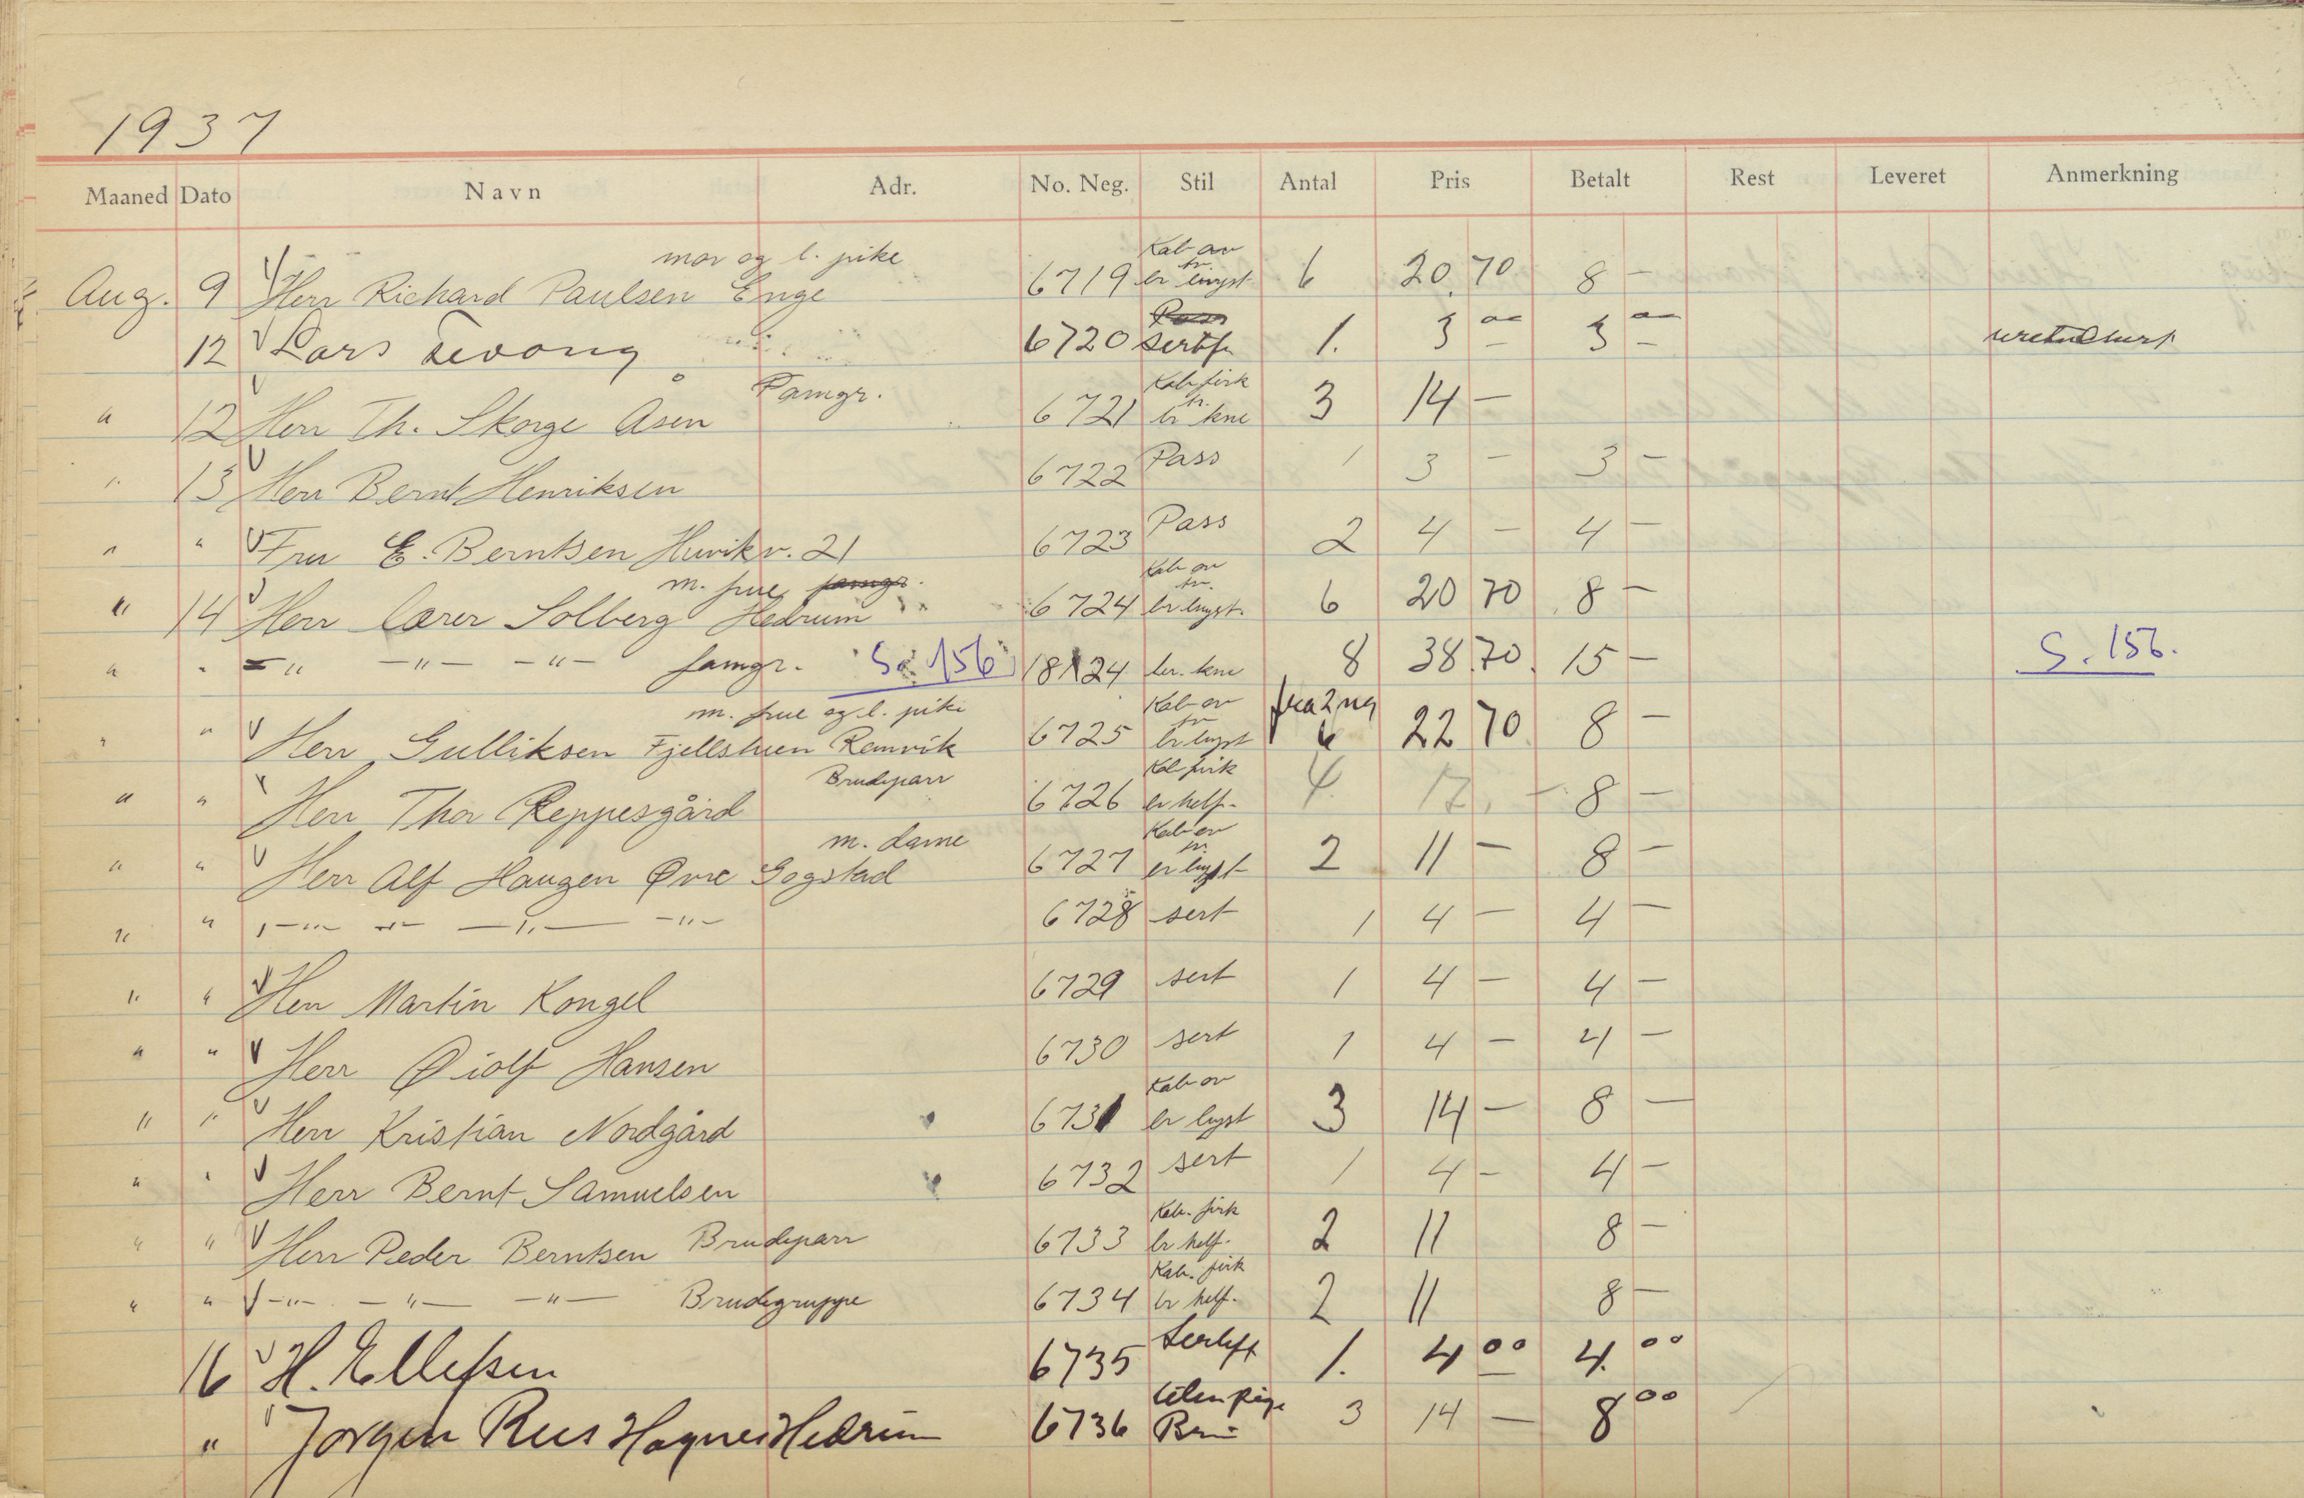 1937
Maaned Dato Navn Adr. No. Neg. Stil Antal Pris Betalt Rest Leveret Anmerkning
mor og l. pike Kab ov
Aug. 9 Herr Richard Paulsen Enge 6719 br. lyst 6 20,70 8 —
12 Lars 6720 1. 3 00 3 00
Famgr. Kab firk
" 12 Herr Th. Skorge Åsen 6721 br kne 3 14 —
" 13 Herr Bernt Henriksen 6722 Pass 1 3 — 3 —
" " Fru E. Berntsen Huvikv. 21 6723 Pass 2 4 — 4 —
m. frue famgr. Kab ov
" 14 Herr Lærer Solberg Hedrum 6724 br lyst. 6 20 70 8 —
" " —"— —"— —"— famgr. S. 156 18124 br. kne 8 38,70 15 — S. 156.
m. frue og l. pike Kab ov fra 2 neg
" " Herr Gulliksen Fjellstuen Ranvik 6725 br lyst 6 22 70 8 —
Brudepar Kab firk
" " Herr Thor Reppesgård 6726 br helf. 4 17, — 8 —
m. dame Kab ov
" " Herr Alf Haugen Øvre Gogstad 6727 br lyst 2 11 — 8 —
" " —"— —"— —"— —"— 6728 sert 1 4 — 4 —
" " Herr Martin Kongel 6729 sert 1 4 — 4 —
" " Herr Øiolf Hansen 6730 sert 1 4 — 4 —
Kab ov
" " Herr Kristian Nordgård 6731 br lyst 3 14 — 8 —
" " Herr Bernt Samuelsen 6732 sert 1 4 — 4 —
Kab. firk
" " Herr Peder Berntsen Brudeparr 6733 br helf. 2 11 8 —
Kab. firk
" " —"— —"— —"— Brudegruppe 6734 br helf. 2 11 8 —
16 H. Ellefsen 6735 Sertft 1. 4 00 4. 00
" Jørgen Hedrum 6736 3 14 — 8 00